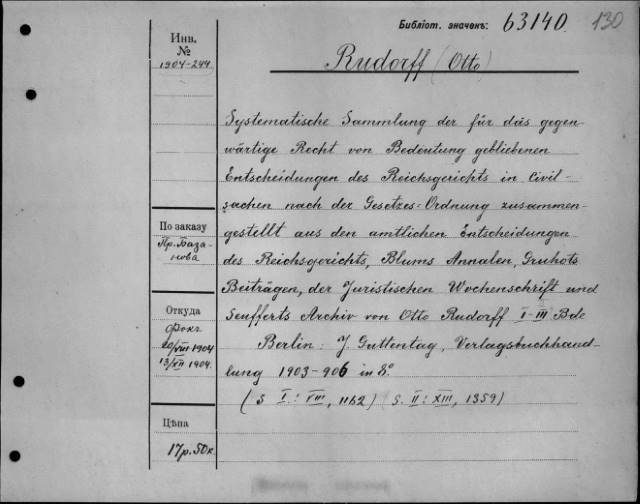 Библіот. значекъ: 63140. 130
Инв.
№
1904-244
Rudorff (Otto)
Systematische Sammlung der für das gegen-
wärtige Recht von Bedeutung gebliebenen
Entscheidungen des Reichsgerichts in Civil-
sachen nach der Gesetzes-Ordnung zusammen-
gestellt aus den amtlichen Entscheidungen
des Reichsgerichts, Blums Annalen, Gruhots
Beiträgen, der Juristischen Wochenschrift und
Seufferts Archiv von Otto Rudorff I-III Bde
Berlin: J. Guttentag, Verlagsbuchhand-
lung 1903-906 in 8.º
(S I: VIII, 1162) (S. II: XIII, 1359)
По заказу
Пр. База-
нова
Откуда
Фокъ
20/VIII 1904
13/VII 1904.
Цѣна
17р.50к.